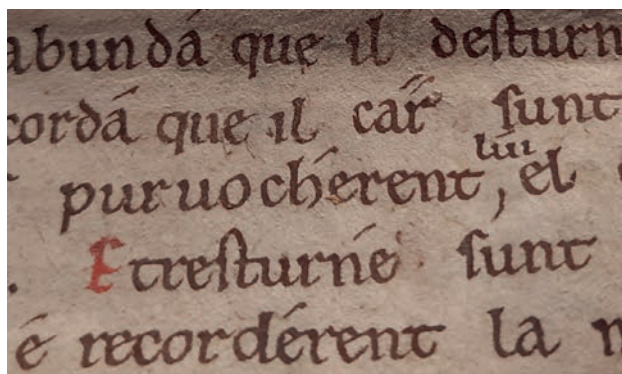 abundá que il deſturn
cordá que il car̃ ſunt
puruochérent lui, el
. E treſturné ſunt
é recordérent la